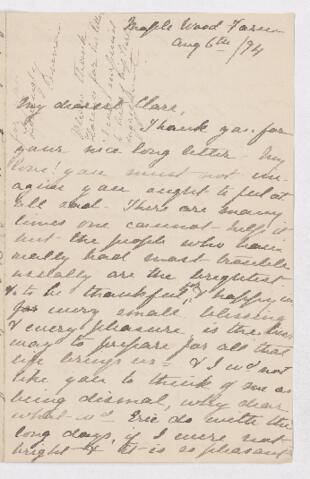 Maple Wood Farm
Aug 6th /94
My dearest Clare,
Thank you for
your nice long letter. My
love! you must not im-
agine you ought to feel at
all sad. There are many
times one cannot help it
but the people who have
really had most trouble
usually are the brightest
& to be thankful, & happy in
for every small blessing
& every pleasure, is the best
way to prepare for all that
life brings us - & I wd not
like you to think of me as
being dismal, why dear
what wd Eric do with the
long days, if I were not
bright & it is as pleasant